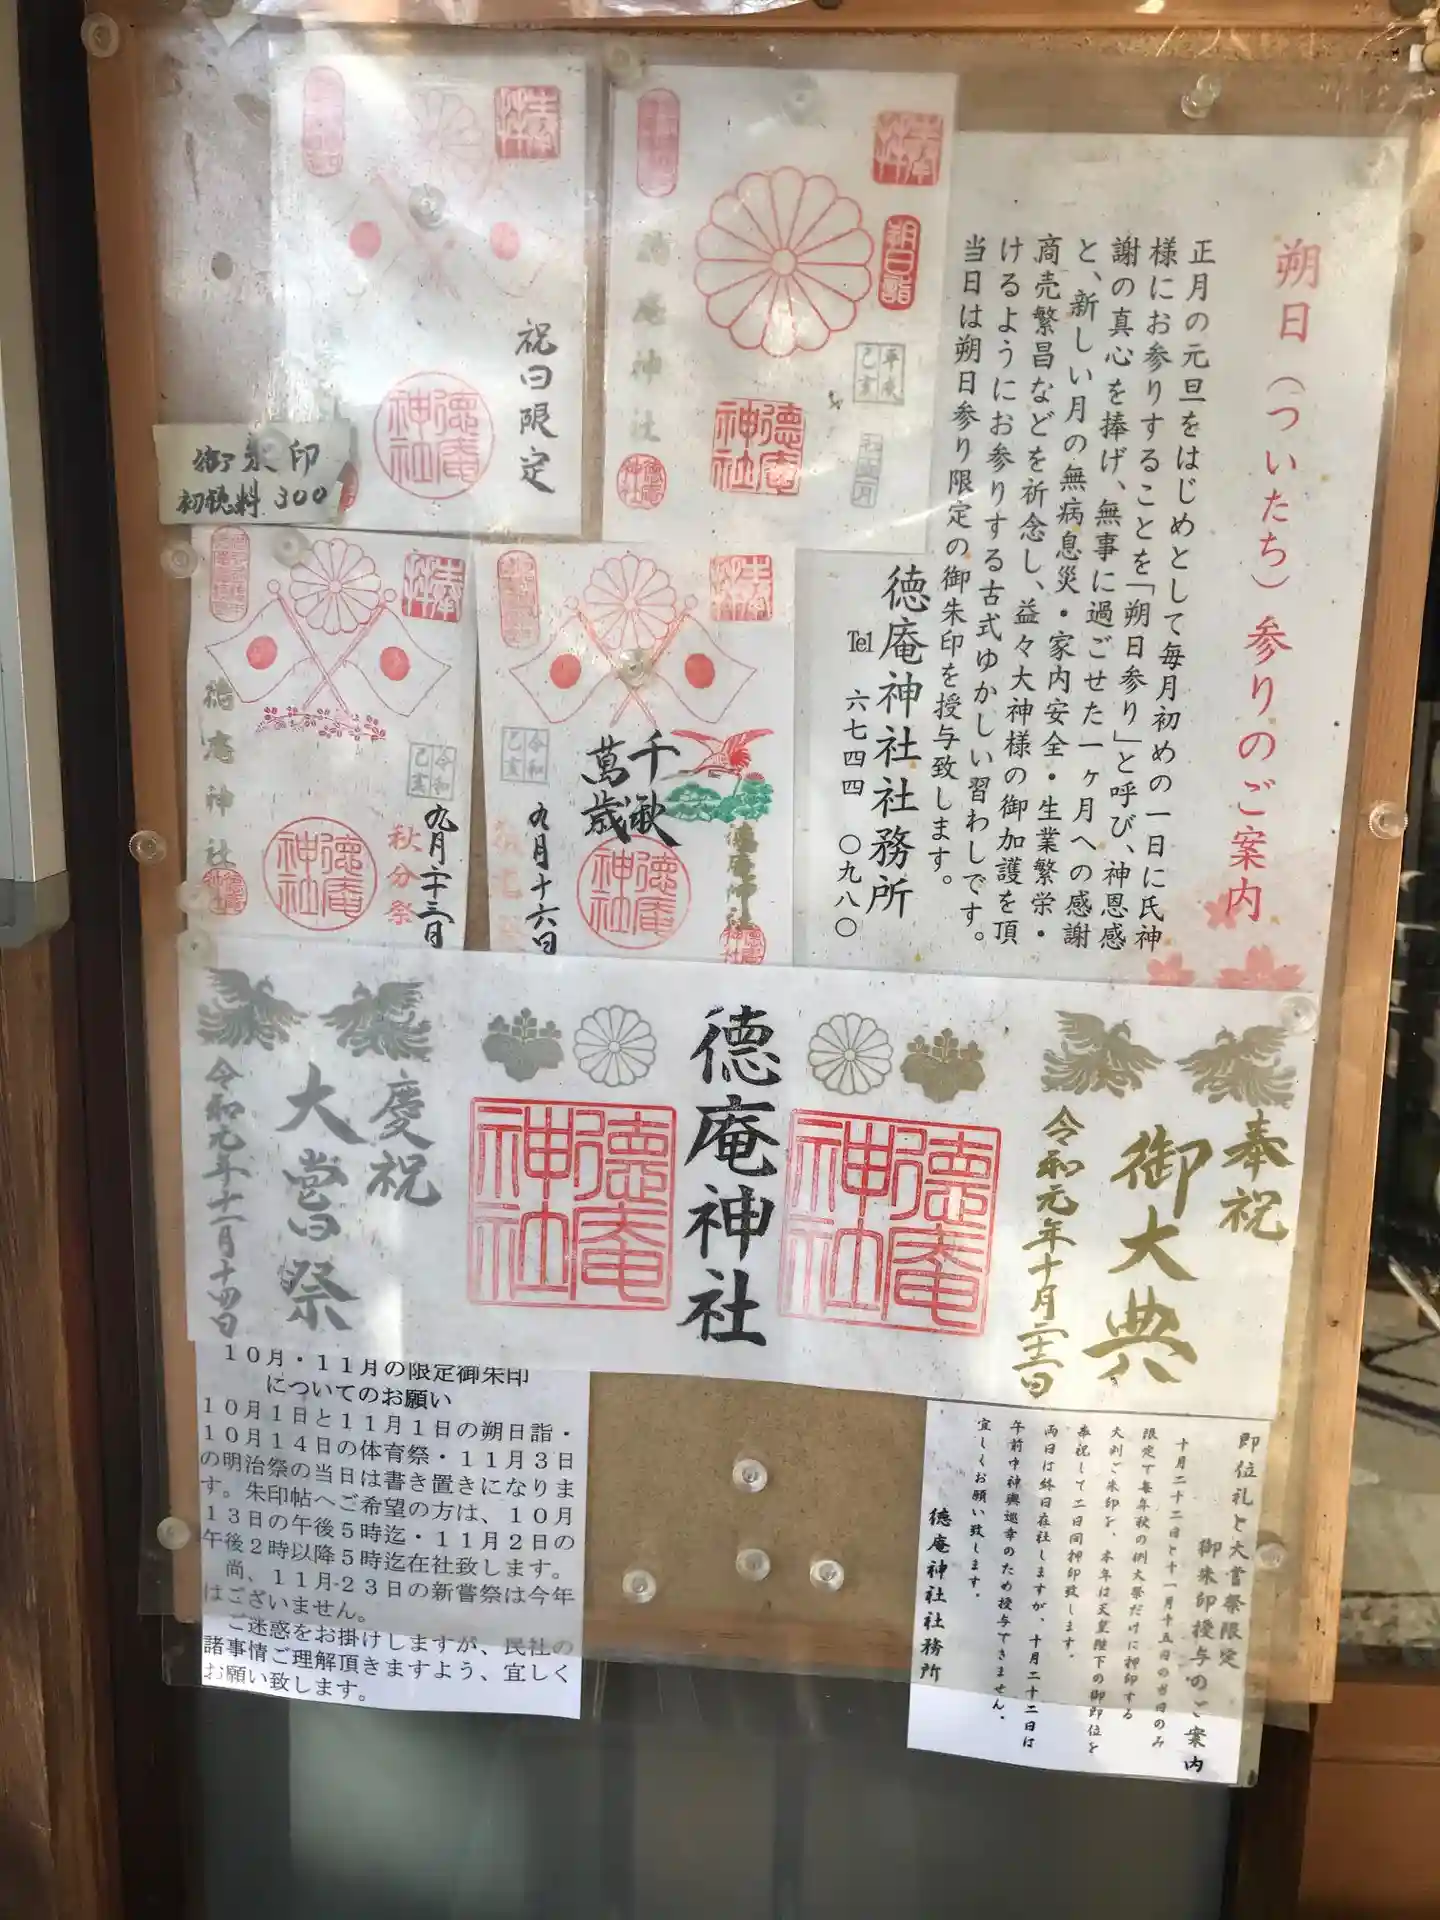 朔日(ついたち)参りのご案内
正月の元旦をはじめとして毎月初めの一日に氏神
様にお参りすることを「朔日参り」と呼び、神恩感
謝の真心を捧げ、無事に過ごせた一ヶ月への感謝
と、新しい月の無病息災・家内安全・生業繁栄・
商売繁昌などを祈念し、益々大神様の御加護を頂
けるようにお参りする古式ゆかしい習わしです。
当日は朔日参り限定の御朱印を授与致します。
徳庵神社社務所
℡ 六七四四 〇九八〇
奉拝
朔日詣
平成
己亥
徳庵神社
徳庵神社
徳庵神社
奉拝
祝日限定
徳庵神社
御朱印
初穂料 300
奉拝
千秋
萬歳
令和
己亥
九月十六日
徳庵神社
徳庵神社
徳庵神社
奉拝
令和
己亥
九月二十三日
秋分祭
徳庵神社
徳庵神社
徳庵神社
奉祝
御大典
令和元年十月二十二日
徳庵神社
徳庵神社
徳庵神社
慶祝
大嘗祭
令和元年十一月十四日
10月・11月の限定御朱印
についてのお願い
10月1日と11月1日の朔日詣・
10月14日の体育祭・11月3日
の明治祭の当日は書き置きになりま
す。朱印帖へご希望の方は、10月
13日の午後5時迄・11月2日の
午後2時以降5時迄在社致します。
尚、11月23日の新嘗祭は今年
はございません。
ご迷惑をお掛けしますが、民社の
諸事情ご理解頂きますよう、宜しく
お願い致します。
即位礼と大嘗祭限定
御朱印授与のご案内
十月二十二日と十一月十五日の当日のみ
限定で毎年秋の例大祭だけに押印する
大判ご朱印を、本年は天皇陛下の御即位を
奉祝して二日間押印致します。
両日は終日在社しますが、十月二十二日は
午前中神輿巡幸のため授与できません。
宜しくお願い致します。
徳庵神社社務所